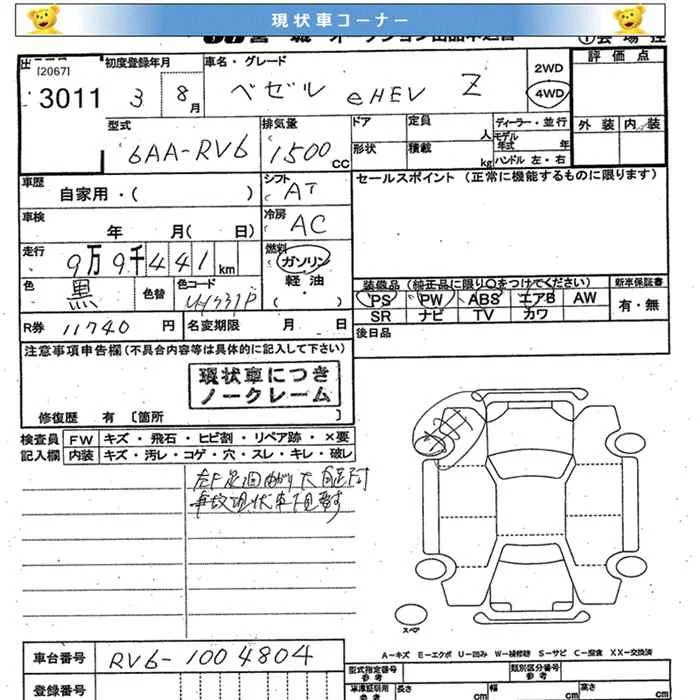 現状車コーナー
評価点
外装 内装
[2067]
3011
初度登録年月
3 8月
車名・グレード
ベゼル eHEV Z
2WD
4WD
型式
6AA-RV6
排気量
1500 cc
ドア 定員 人
形状 積載 kg
ディーラー・並行
モデル年式 年
ハンドル 左・右
車歴
自家用・( )
シフト
AT
セールスポイント (正常に機能するものに限ります)
車検
年 月( 日)
冷房
AC
走行
9万9千441km
燃料
ガソリン
軽油
( ・ )
色
黒
色替
色コード
装備品 (純正品に限り○をつけてください)
新車保証書
PS PW ABS エアB AW
有・無
SR ナビ TV カワ
R券 11740 円
名変期限 月 日
後日品
注意事項申告欄(不具合内容等は具体的に記入して下さい)
現状車につき
ノークレーム
修復歴 有 [箇所 ]
検査員 FW キズ・飛石・ヒビ割・リペア跡・×要
記入欄 内装 キズ・汚レ・コゲ・穴・スレ・キレ・破レ
事故現状車下見要す
スペア
A-キズ E-エクボ U-凹み W-補修跡 S-サビ C-腐食 XX-交換済
車台番号
RV6-1004804
登録番号
型式指定番号
参考
類別区分番号
参考
車庫証明用
参考
長さ cm
幅 cm
高さ cm